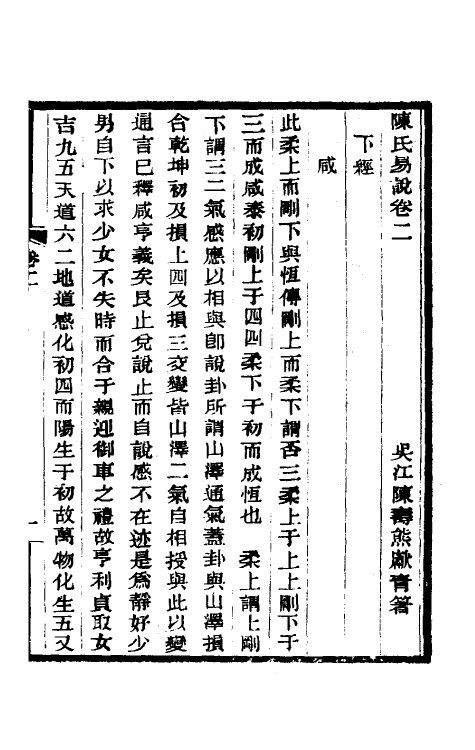 陳氏易說卷二
吳江陳壽熊獻青著
下經
咸
此柔上而剛下與恆傳剛上而柔下謂否三柔上于上上剛下于
三而成咸泰初剛上于四四柔下于初而成恆也　柔上謂上剛
下謂三二氣感應以相與卽說卦所謂山澤通氣蓋卦與山澤損
合乾坤初及損上四及損三交變皆山澤二氣自相授與此以變
通言已釋咸亨義矣艮止兌說止而自說感不在迹是爲靜好少
男自下以求少女不失時而合于親迎御車之禮故亨利貞取女
吉九五天道六二地道感化初四而陽生于初故萬物化生五又
卷二
一